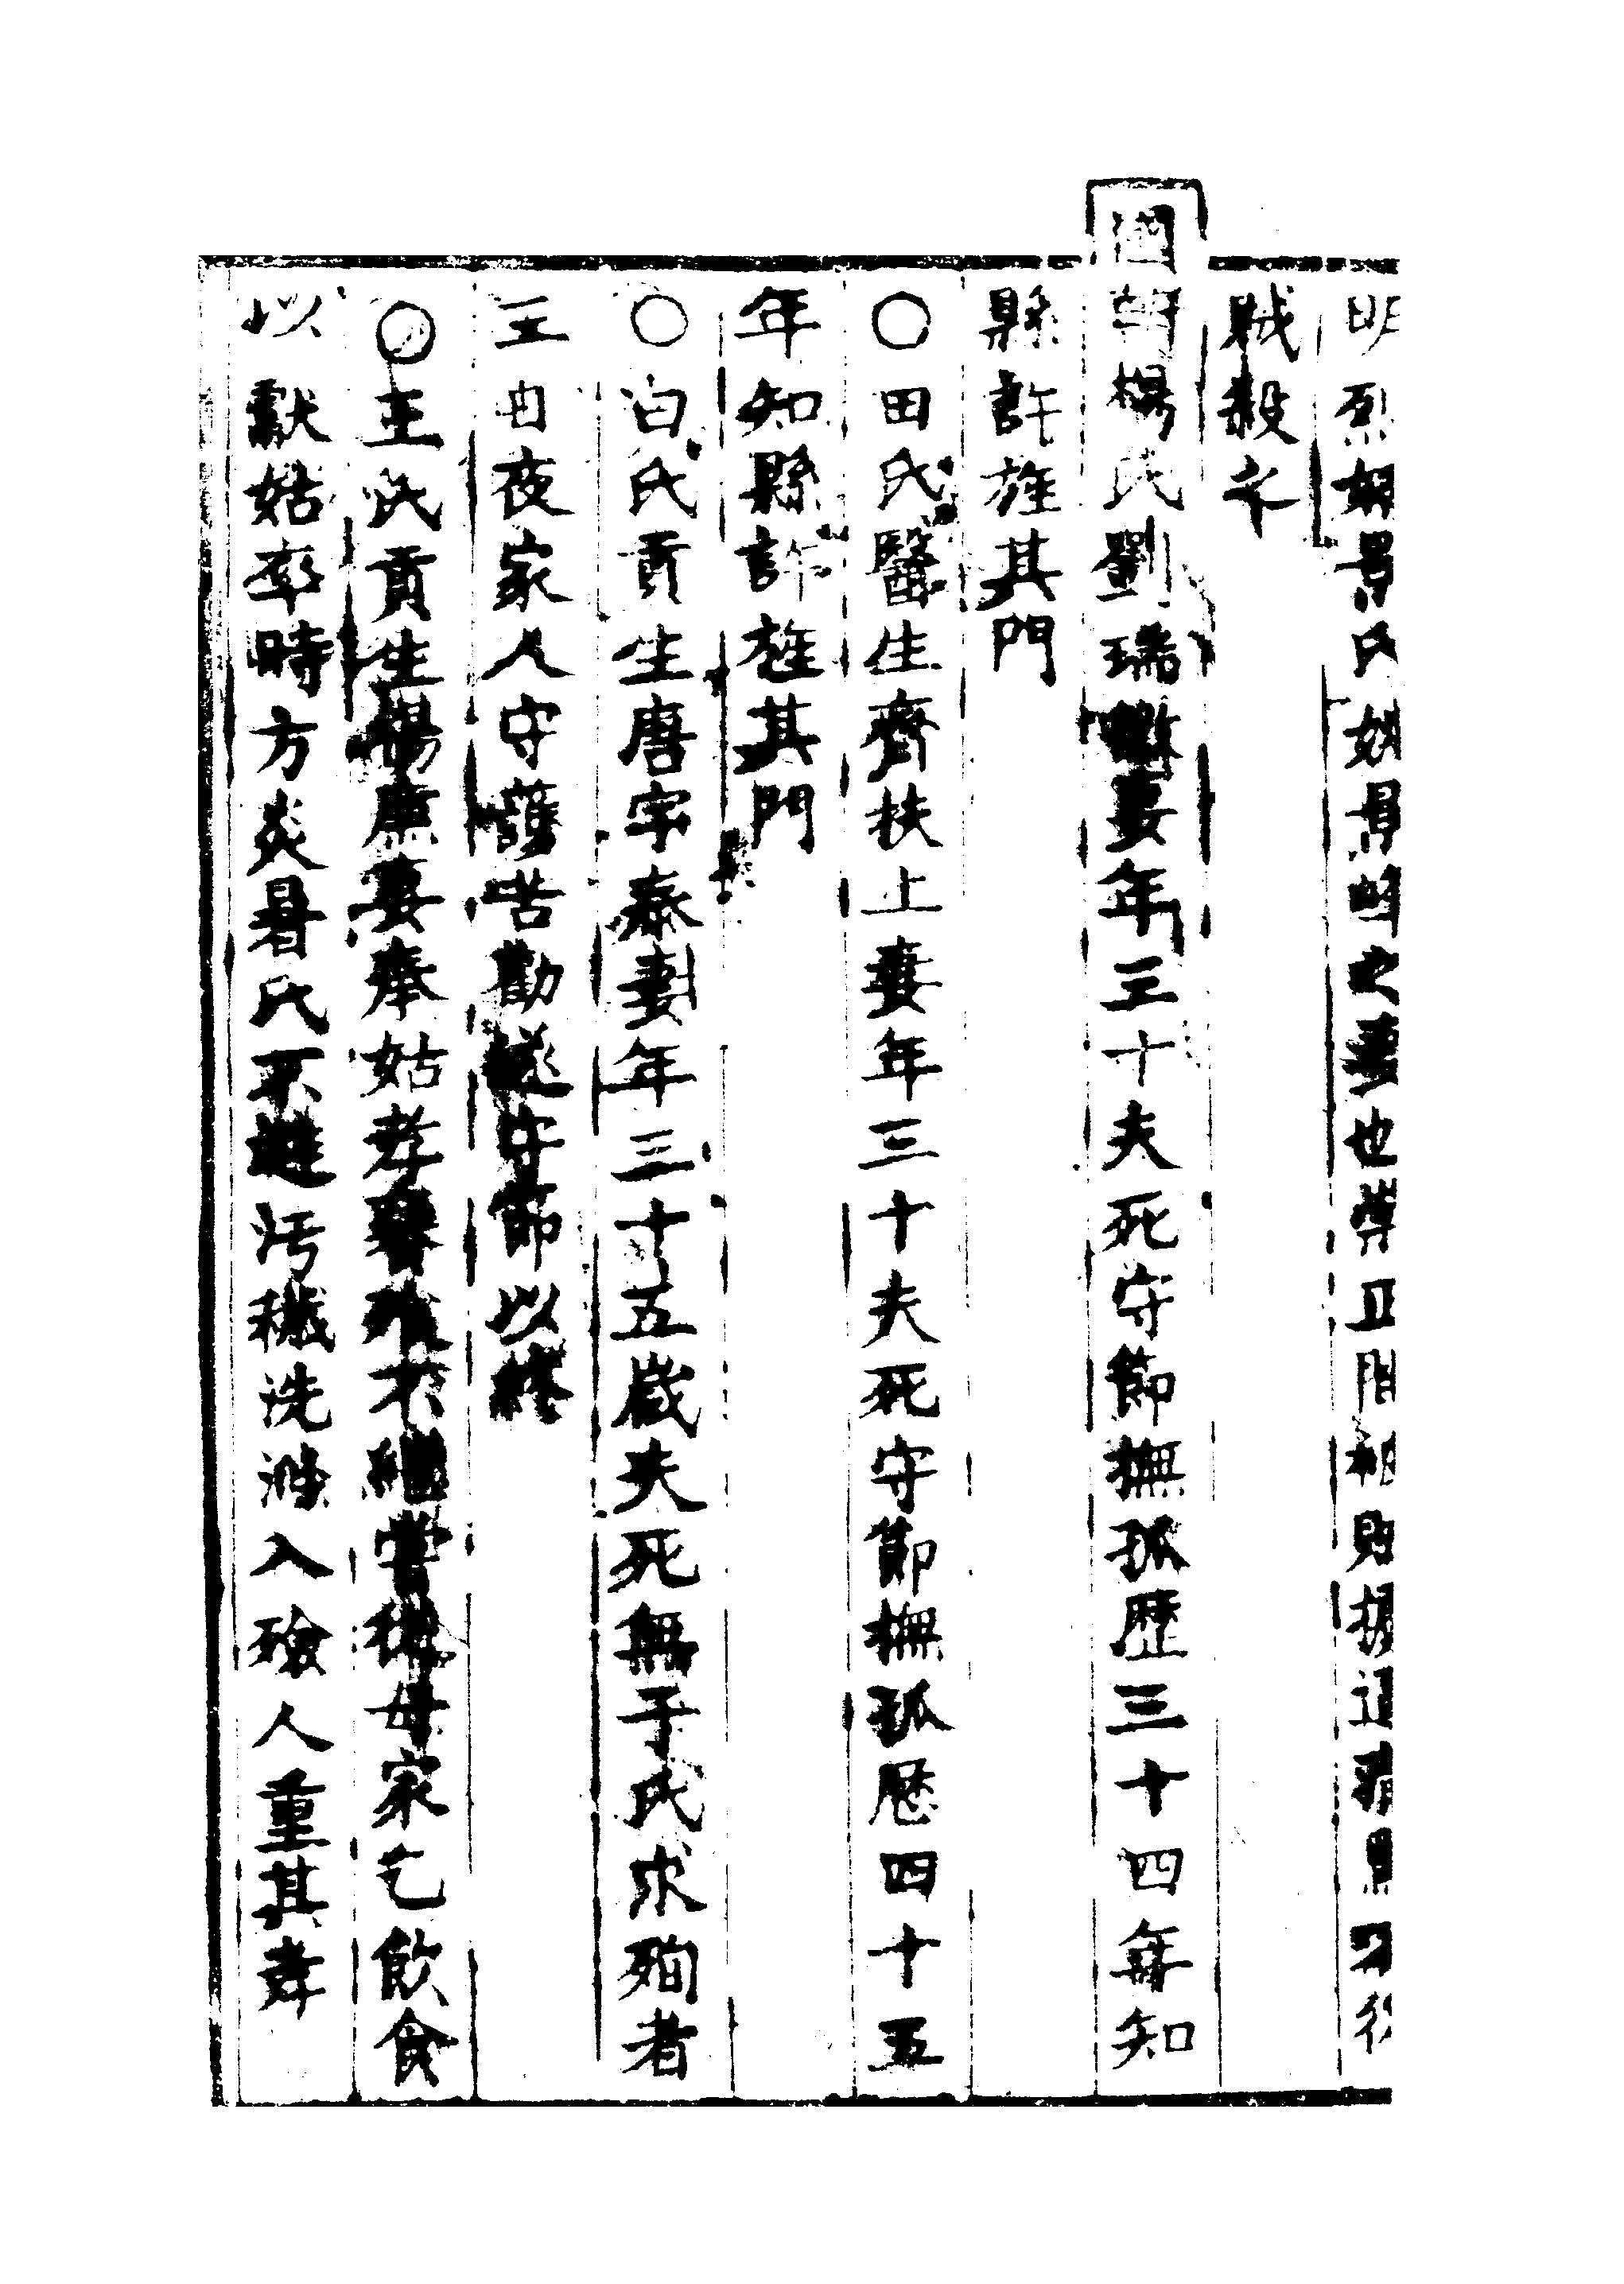 明烈婦景氏姚景時之妻也崇正間被賊擄逼

賊殺之
國朝楊氏劉瑞妻年三十夫死守節撫孤歷三十四年知
縣許旌其門
〇田氏醫生齊扶上妻年三十夫死守節撫孤歷四十五
年知縣許旌其門
〇白氏貢生唐宇泰妻年三十五歲夫死無子氏求殉者
三日夜家人守護苦勸遂守節以終
〇王氏貢生楊廉妻奉姑孝饔飱不繼嘗從母家乞飲食
以獻姑卒時方炎暑氏不避污穢洗滌入殮人重其孝